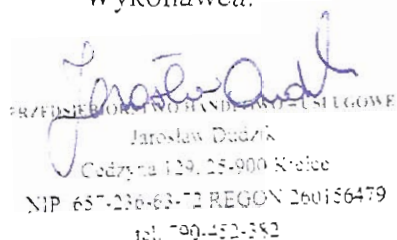 Wykonawca:
PRZEDSIĘBIORSTWO HANDLOWO - USŁUGOWE
Jarosław Dudzik
Cedzyna 129, 25-900 Kielce
NIP 657-236-63-72 REGON 260156479
tel. 790-452-382